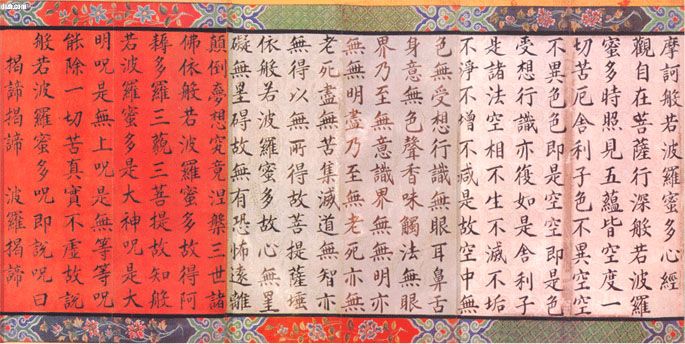 摩訶般若波羅蜜多心經
觀自在菩薩行深般若波羅
蜜多時照見五蘊皆空度一
切苦厄舍利子色不異空空
不異色色即是空空即是色
受想行識亦復如是舍利子
是諸法空相不生不滅不垢
不淨不增不減是故空中無
色無受想行識無眼耳鼻舌
身意無色聲香味觸法無眼
界乃至無意識界無無明亦
無無明盡乃至無老死亦無
老死盡無苦集滅道無智亦
無得以無所得故菩提薩埵
依般若波羅蜜多故心無罣
礙無罣碍故無有恐怖遠離
顛倒夢想究竟涅槃三世諸
佛依般若波羅蜜多故得阿
耨多羅三藐三菩提故知般
若波羅蜜多是大神呪是大
明呪是無上呪是無等等呪
能除一切苦真實不虛故說
般若波羅蜜多呪即說呪曰
揭諦揭諦 波羅揭諦